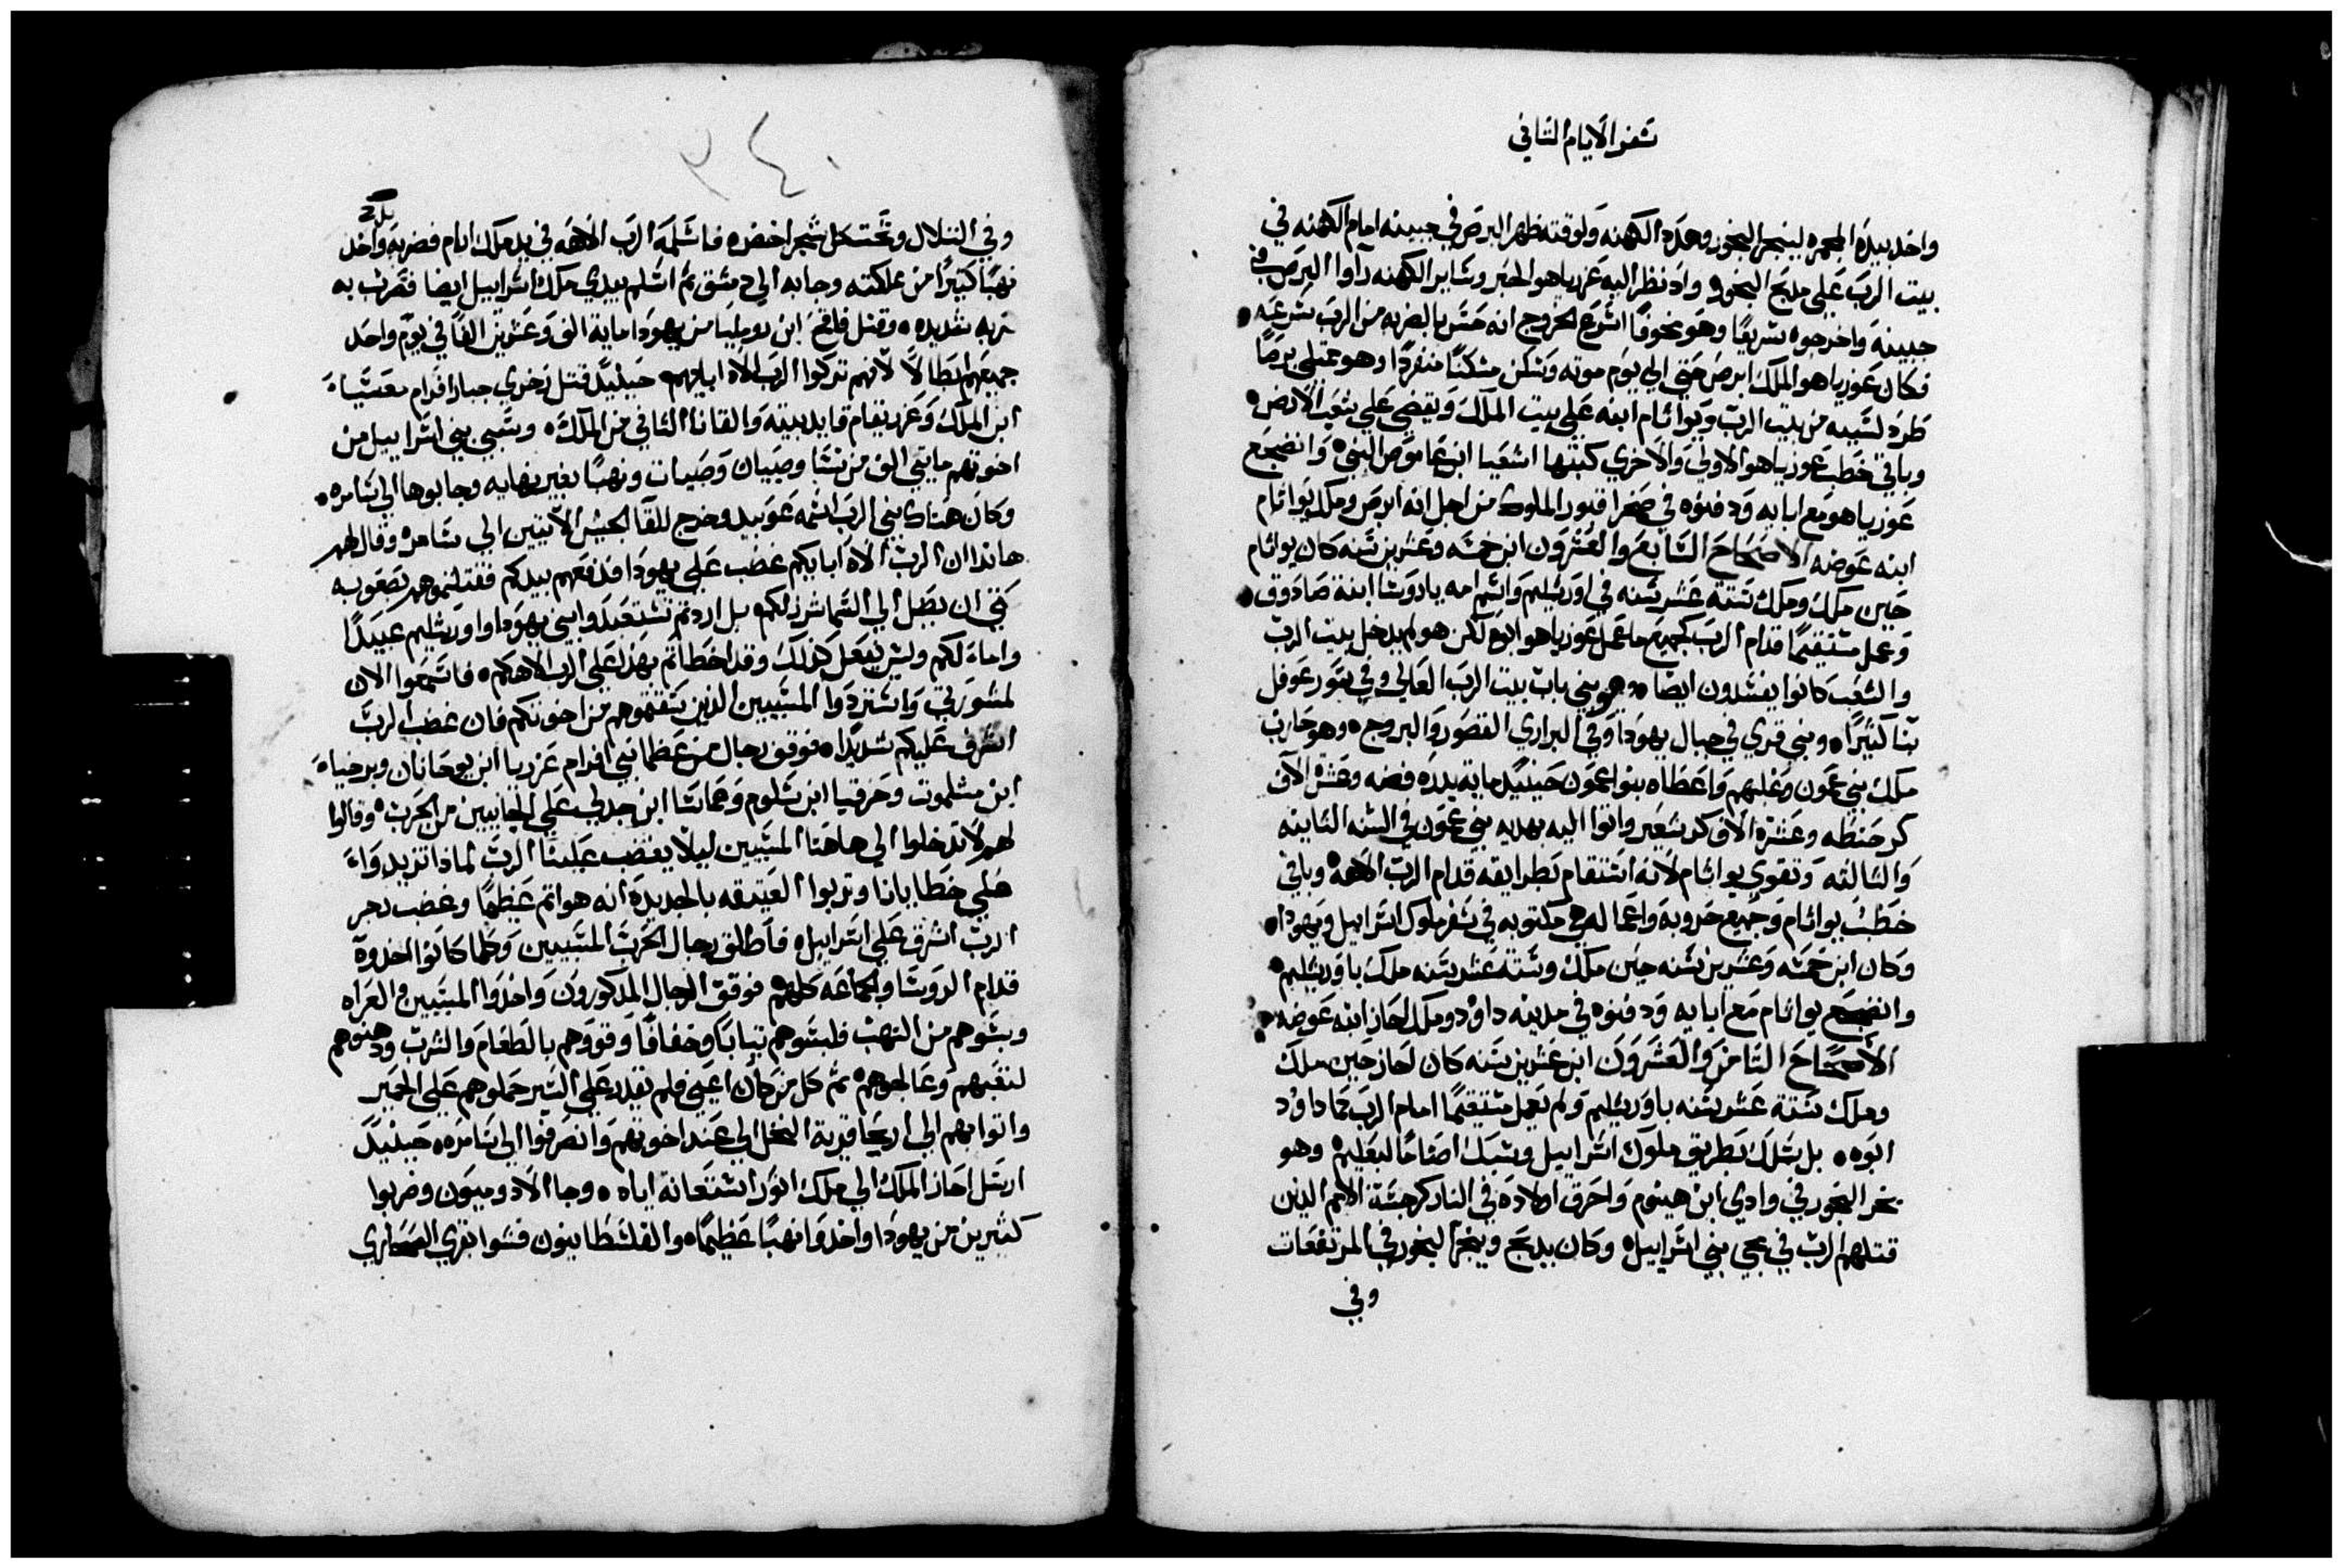 سفر الايام الثاني
واخد بيده المجمره ليبخر البخور وهدد الكهنه ولوقته ظهر البرص في جبينه امام الكهنه في
بيت الرب علي مدبح البخور واد نظر اليه عزرياهو الحبر وساير الكهنه راوا البرص في
جبينه واخرجوه سريعًا وهو مخوفًا اسرع الخروج انه حس بالضربه من الرب سرعه
فكان عوزياهو الملك ابرص حتي الي يوم موته وسكن مسكنًا منفردًا وهو ممتلي برصًا
طرد لسببه من بيت الرب ويواثام ابنه علي بيت الملك ويقضي علي شعب الارض
وباقي خطب عوزياهو الاولي والاخري كتبها اشعيا ابن عاموص النبي وانضجع
عوزياهو مع ابايه ودفنوه في صحرا قبور الملوك من اجل انه ابرص وملك يواثام
ابنه عوضه الاصحاح السابع والعشرون ابن خمسه وعشرين سنه كان يواثام
حين ملك وملك ستة عشر سنه في اورشليم واسم امه ياروشا ابنة صادوق
وعمل مستقيمًا قدام الرب كجميع ما عمل عوزياهو ابوه لكن هو لم يدخل بيت الرب
والشعب كانوا يفسدون ايضًا وهو بني باب بيت الرب العالي وفي سور عوفل
بنا كثيرًا وبني قري في جبال يهودا وفي البراري القصور والبروج وهو حارب
ملك بني عمون وغلبهم واعطاه بنوا عمون حينيد ماية بدره فضه وعشرة الاف
كر حنطه وعشرة الاف كر شعير واتوا اليه بهديه بني عمون في السنه الثانيه
والثالثه وتقوي يواثام لانه استقام بطرايقه قدام الرب الاهه وباقي
خطب يواثام وجميع حروبه واعماله هي مكتوبه في سفر ملوك اسراييل ويهودا
وكان ابن خمسه وعشرين سنه حين ملك وستة عشر سنه ملك باورشليم
وانضجع يواثام مع ابايه ودفنوه في مدينه داوود وملك احاز ابنه عوضه
الاصحاح الثامن والعشرون ابن عشرين سنه كان احاز حين ملك
وملك ستة عشر سنه باورشليم ولم يعمل مستقيمًا امام الرب كما داود
ابوه بل سلك بطريق ملوك اسراييل وسبك اصنامًا لبعليم وهو
بخر البخور في وادي ابن هينوم واحرق اولاده في النار كرجسة الامم الدين
قتلهم الرب في مجي بني اسراييل وكان يدبح ويبخر البخور في المرتفعات
وفي
٣٤٠
وفي التلال وتحت كل شجر اخضر فاسلمه الرب الاهه في يد ملك ارام فضربه واخد
نهبًا كثيرًا من مملكته وجابه الي دمشق ثم اسلم بيدي ملك اسراييل ايضا فضرب به
ضربه شديده وقتل فاقح ابن روميليا من يهودا ماية الف وعشرين الفًا في يوم واحد
جميعهم ابطالًا لانهم تركوا الرب الاه ابايهم حينيد قتل زخري جبار افرام معسيا
ابن الملك وعزريقام قايد بيته والقانا الثاني من الملك وسبي بني اسراييل من
اخوتهم مايتي الف من نسا وصبيان وصبيات ونهبًا بغير نهايه وجابوها الي سامره
وكان هناك نبي الرب اسمه عوبيد وخرج للقا الجيش الاتيين الي سامره وقال لهم
هاندا ان الرب الاه ابايكم غضب علي يهودا فدفعهم بيدكم فقتلتموهم بصعوبه
حتي ان بصل الي السما شركم بل اردتم تستعبدوا بني يهودا واورشليم عبيدًا
واماء لكم وليس يفعل كدلك وقد اخطاتم بهدا علي الرب الاهكم فاسمعوا الان
لمشورتي واستردوا المسبيين الدين سقتموهم من اخوتكم فان غضب الرب
اشرف عليكم شديدًا فوقف رجال من عظما بني افرام عزريا ابن يوحانان وبرخيا
ابن مشلموت وحزقيا ابن شلوم وعماسا ابن حدلي علي الجايبين من الحرب وقالوا
لهم لا تدخلوا الي هاهنا المسبيين ليلا يغضب علينا الرب لمادا تزيدوا
علي خطايانا وتربوا العتيقه بالجديده انه هو اثم عظيمًا وغضب رجز
الرب اشرف علي اسراييل فاطلق رجال الحرب المسبيين وكلما كانوا اخدوه
قدام الروسا والجماعه كلهم فوقف الرجال المدكورون واخدوا المسبيين والعراه
وبسوهم من النهب فلبسوهم تيابًا وخفافًا وقووهم بالطعام والشرب ودهنوهم
لتعبهم وعالجوهم ثم كل من كان اعيي فلم يقدر علي السير حملوهم علي الحمير
واتوا بهم الي اريحا قرية النخل الي عند اخوتهم وانصرفوا الي سامره حينيد
ارسل احاز الملك الي ملك اثور استعانه اياه وجا الادوميون وضربوا
كثيرين من يهودا واخدوا نهبًا عظيمًا والفلسطانيون فشوا بقري الصحاري